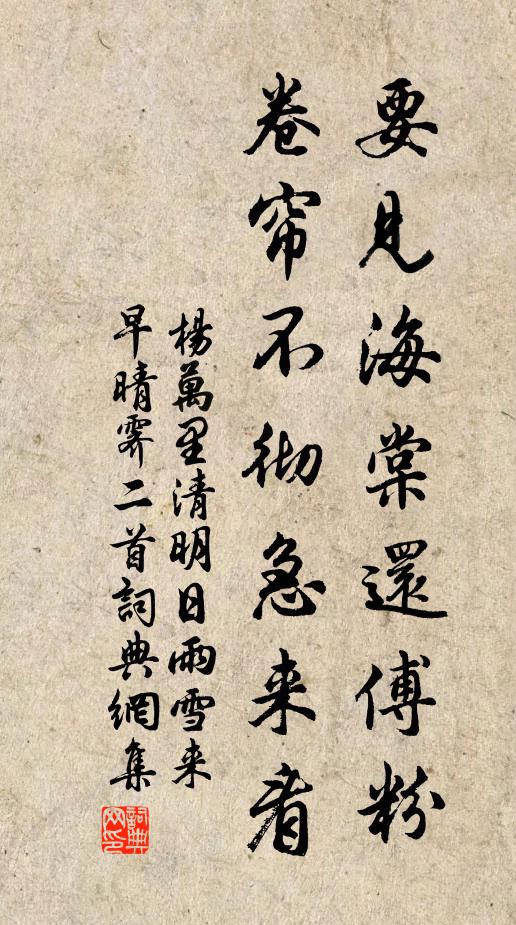 要見海棠還傅粉
卷帘不彻急来看
楊萬里清明日雨雪来
早晴霁二首詞典網集
詞典网印